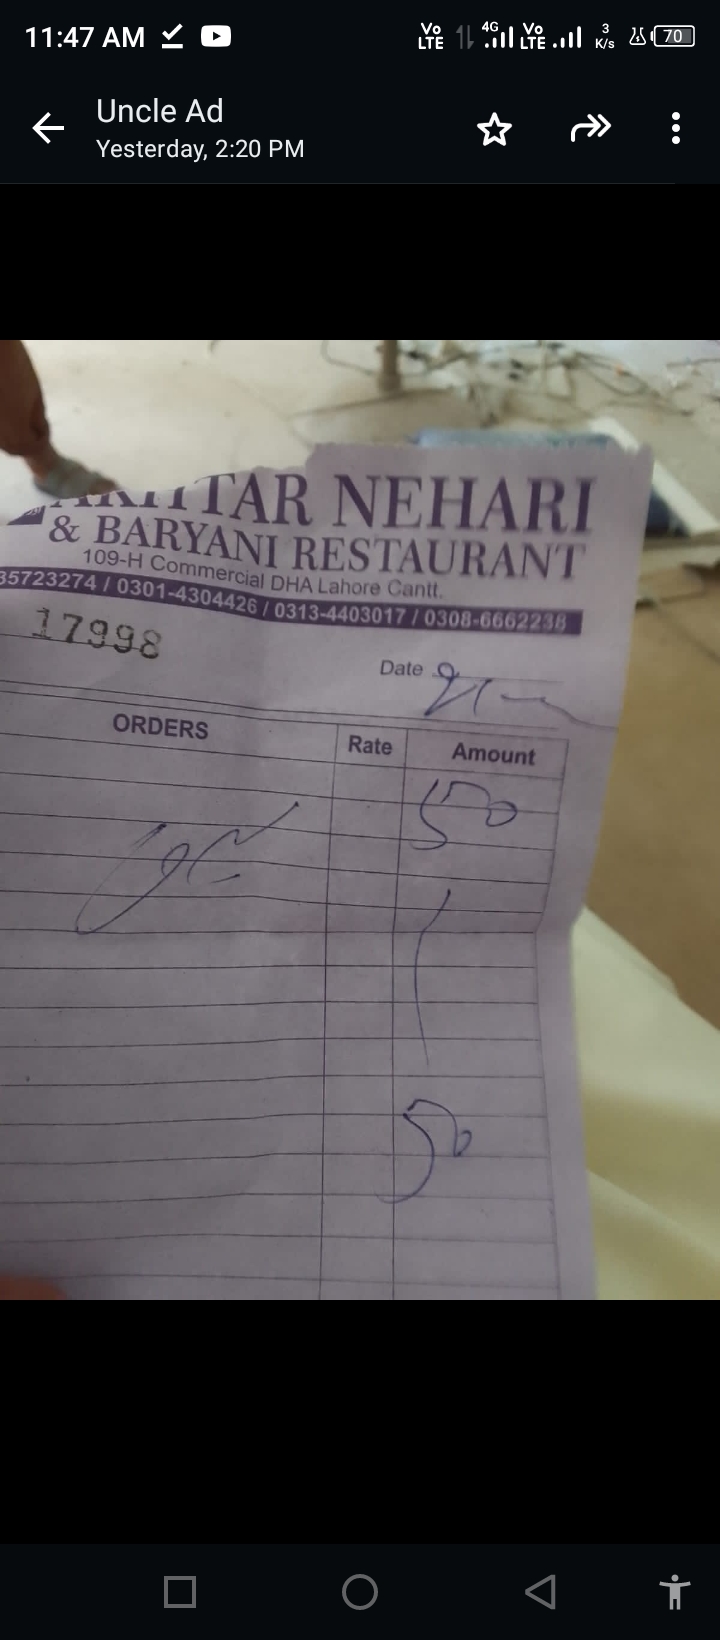 11:47 AM Vo LTE 4G Vo LTE 3 K/s 70
Uncle Ad
Yesterday, 2:20 PM
TAR NEHARI
& BARYANI RESTAURANT
109-H Commercial DHA Lahore Cantt.
35723274 / 0301-4304426 / 0313-4403017 / 0308-6662238
17998
Date
ORDERS Rate Amount
50
50